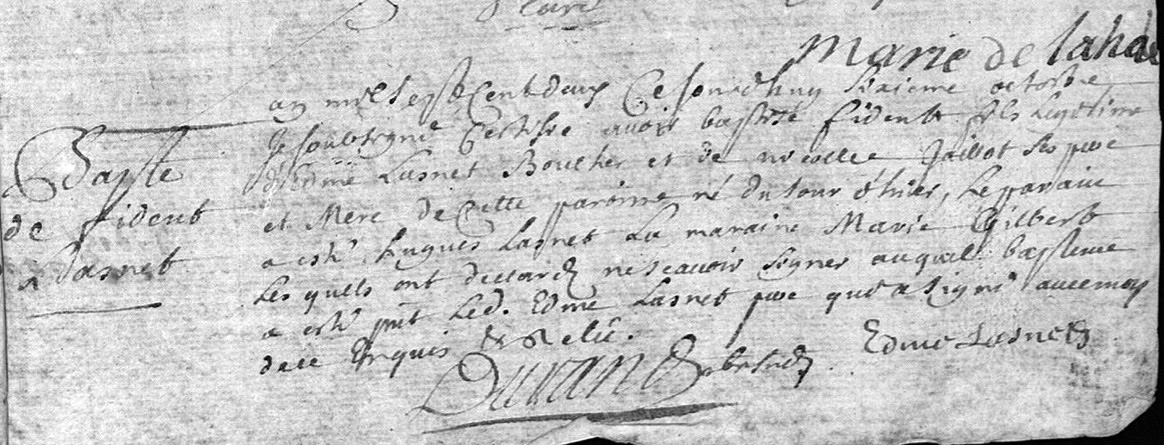 Marie de lahaie
an mil sept Cent deux Ce jourdhuy sixieme octobre
Je soubsigné Certifie avoir baptisé fident fils Legitime
d'Edmé Lasnet Boucher et de nicolle Jaillot ses pere
et Mere de Cette paroisse né du jour d'hier, Le parain
a esté hugues Lasnet La maraine Marie Gilbert
Les quels ont declaré ne scavoir signer auquel baptesme
a esté pnt Led. Edme Lasnet pere qui a signé avec moy
de ce Enquis
Bapte
de fident
Lasnet
Edme Lasnet
Durand